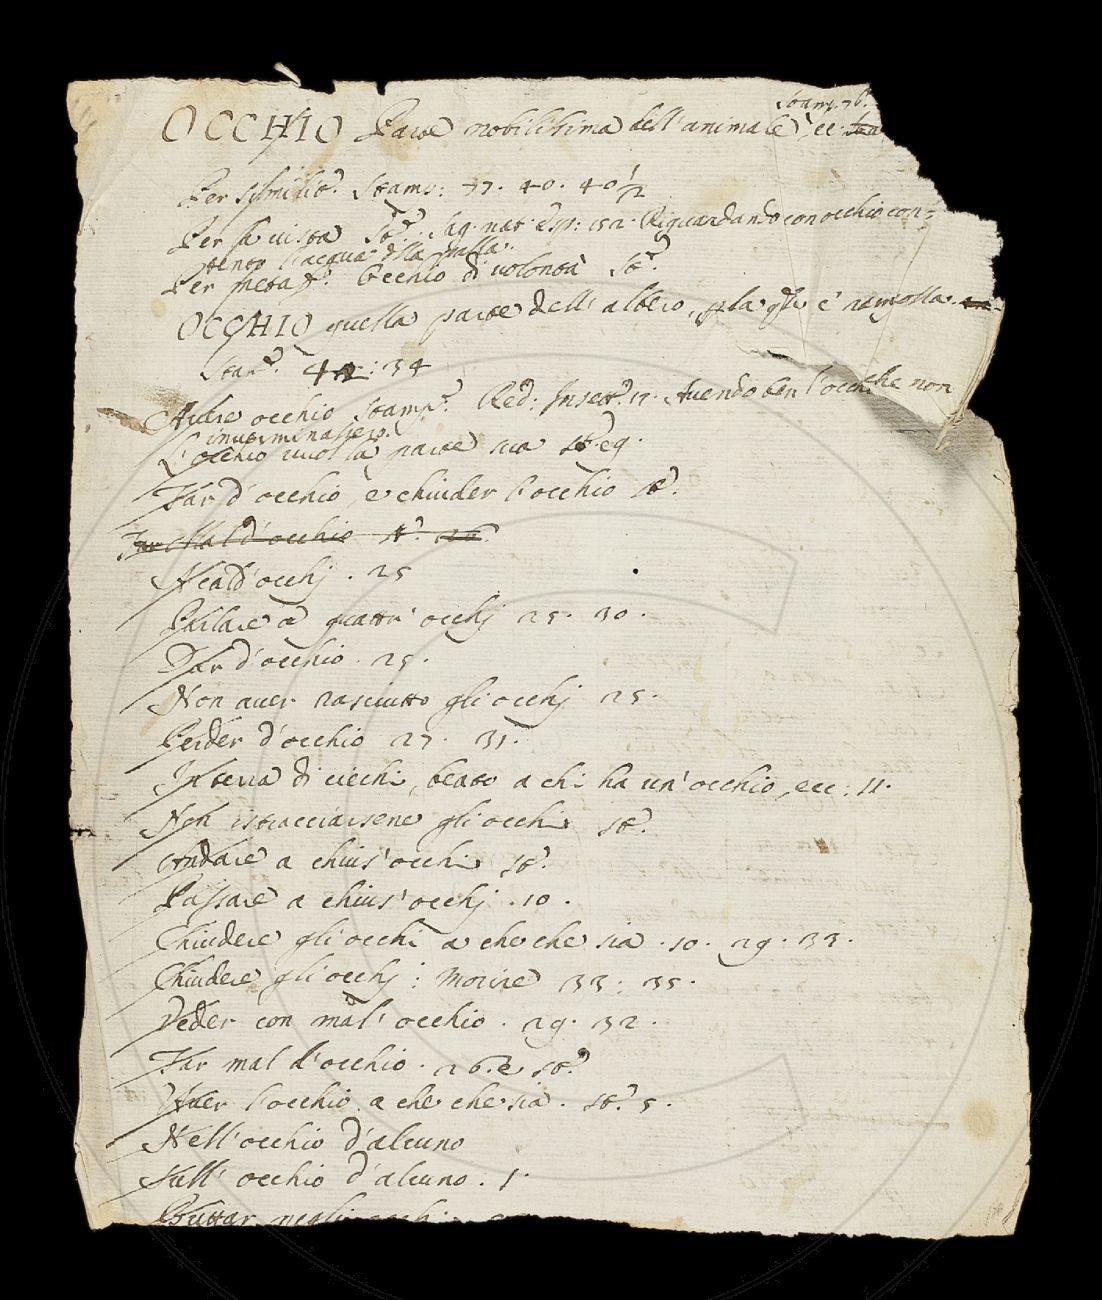 Stamp. 76.
OCCHIO Parte nobilissima dell'animale, ec.
Per similit. Stamp: 37. 40. 40½
Per la vista St. Sag. nat. esp: 152. Riguardando con occhio con=
tento l'acqua della palla.
Per metaf. Occhio di volontà St.
OCCHIO quella parte dell'albero, p la qle è rampolla.
Stam. 42: 34
Avere occhio Stamp. Red: Insett. 17. Avendo ben l'occhio che non
inverminassero.
L'occhio vuol la parte sua St eg.
Far d'occhio, e chiuder l'occhio St.
Far Mal d'occhio St. 26.
A cald'occhj. 25
Parlare a quattr'occhj 25. 30.
Dar d'occhio. 25.
Non aver rasciutto gli occhj 25.
Perder d'occhio 27. 31.
In terra di ciechi, beato a chi ha un'occhio, ecc: 11.
Non istracciarsene gli occhi St.
Andare a chius'occhi St.
Passare a chius'occhj. 10.
Chiudere gli occhi a che che sia. 10. 29. 33.
Chiudere gli occhj: morire 33: 35.
Veder con mal'occhio. 29. 32.
Far mal d'occhio. 26. e St.
Aver l'occhio a che che sia. St. 5.
Nell'occhio d'alcuno
Sull'occhio d'alcuno. 1.
Buttar negli occhi